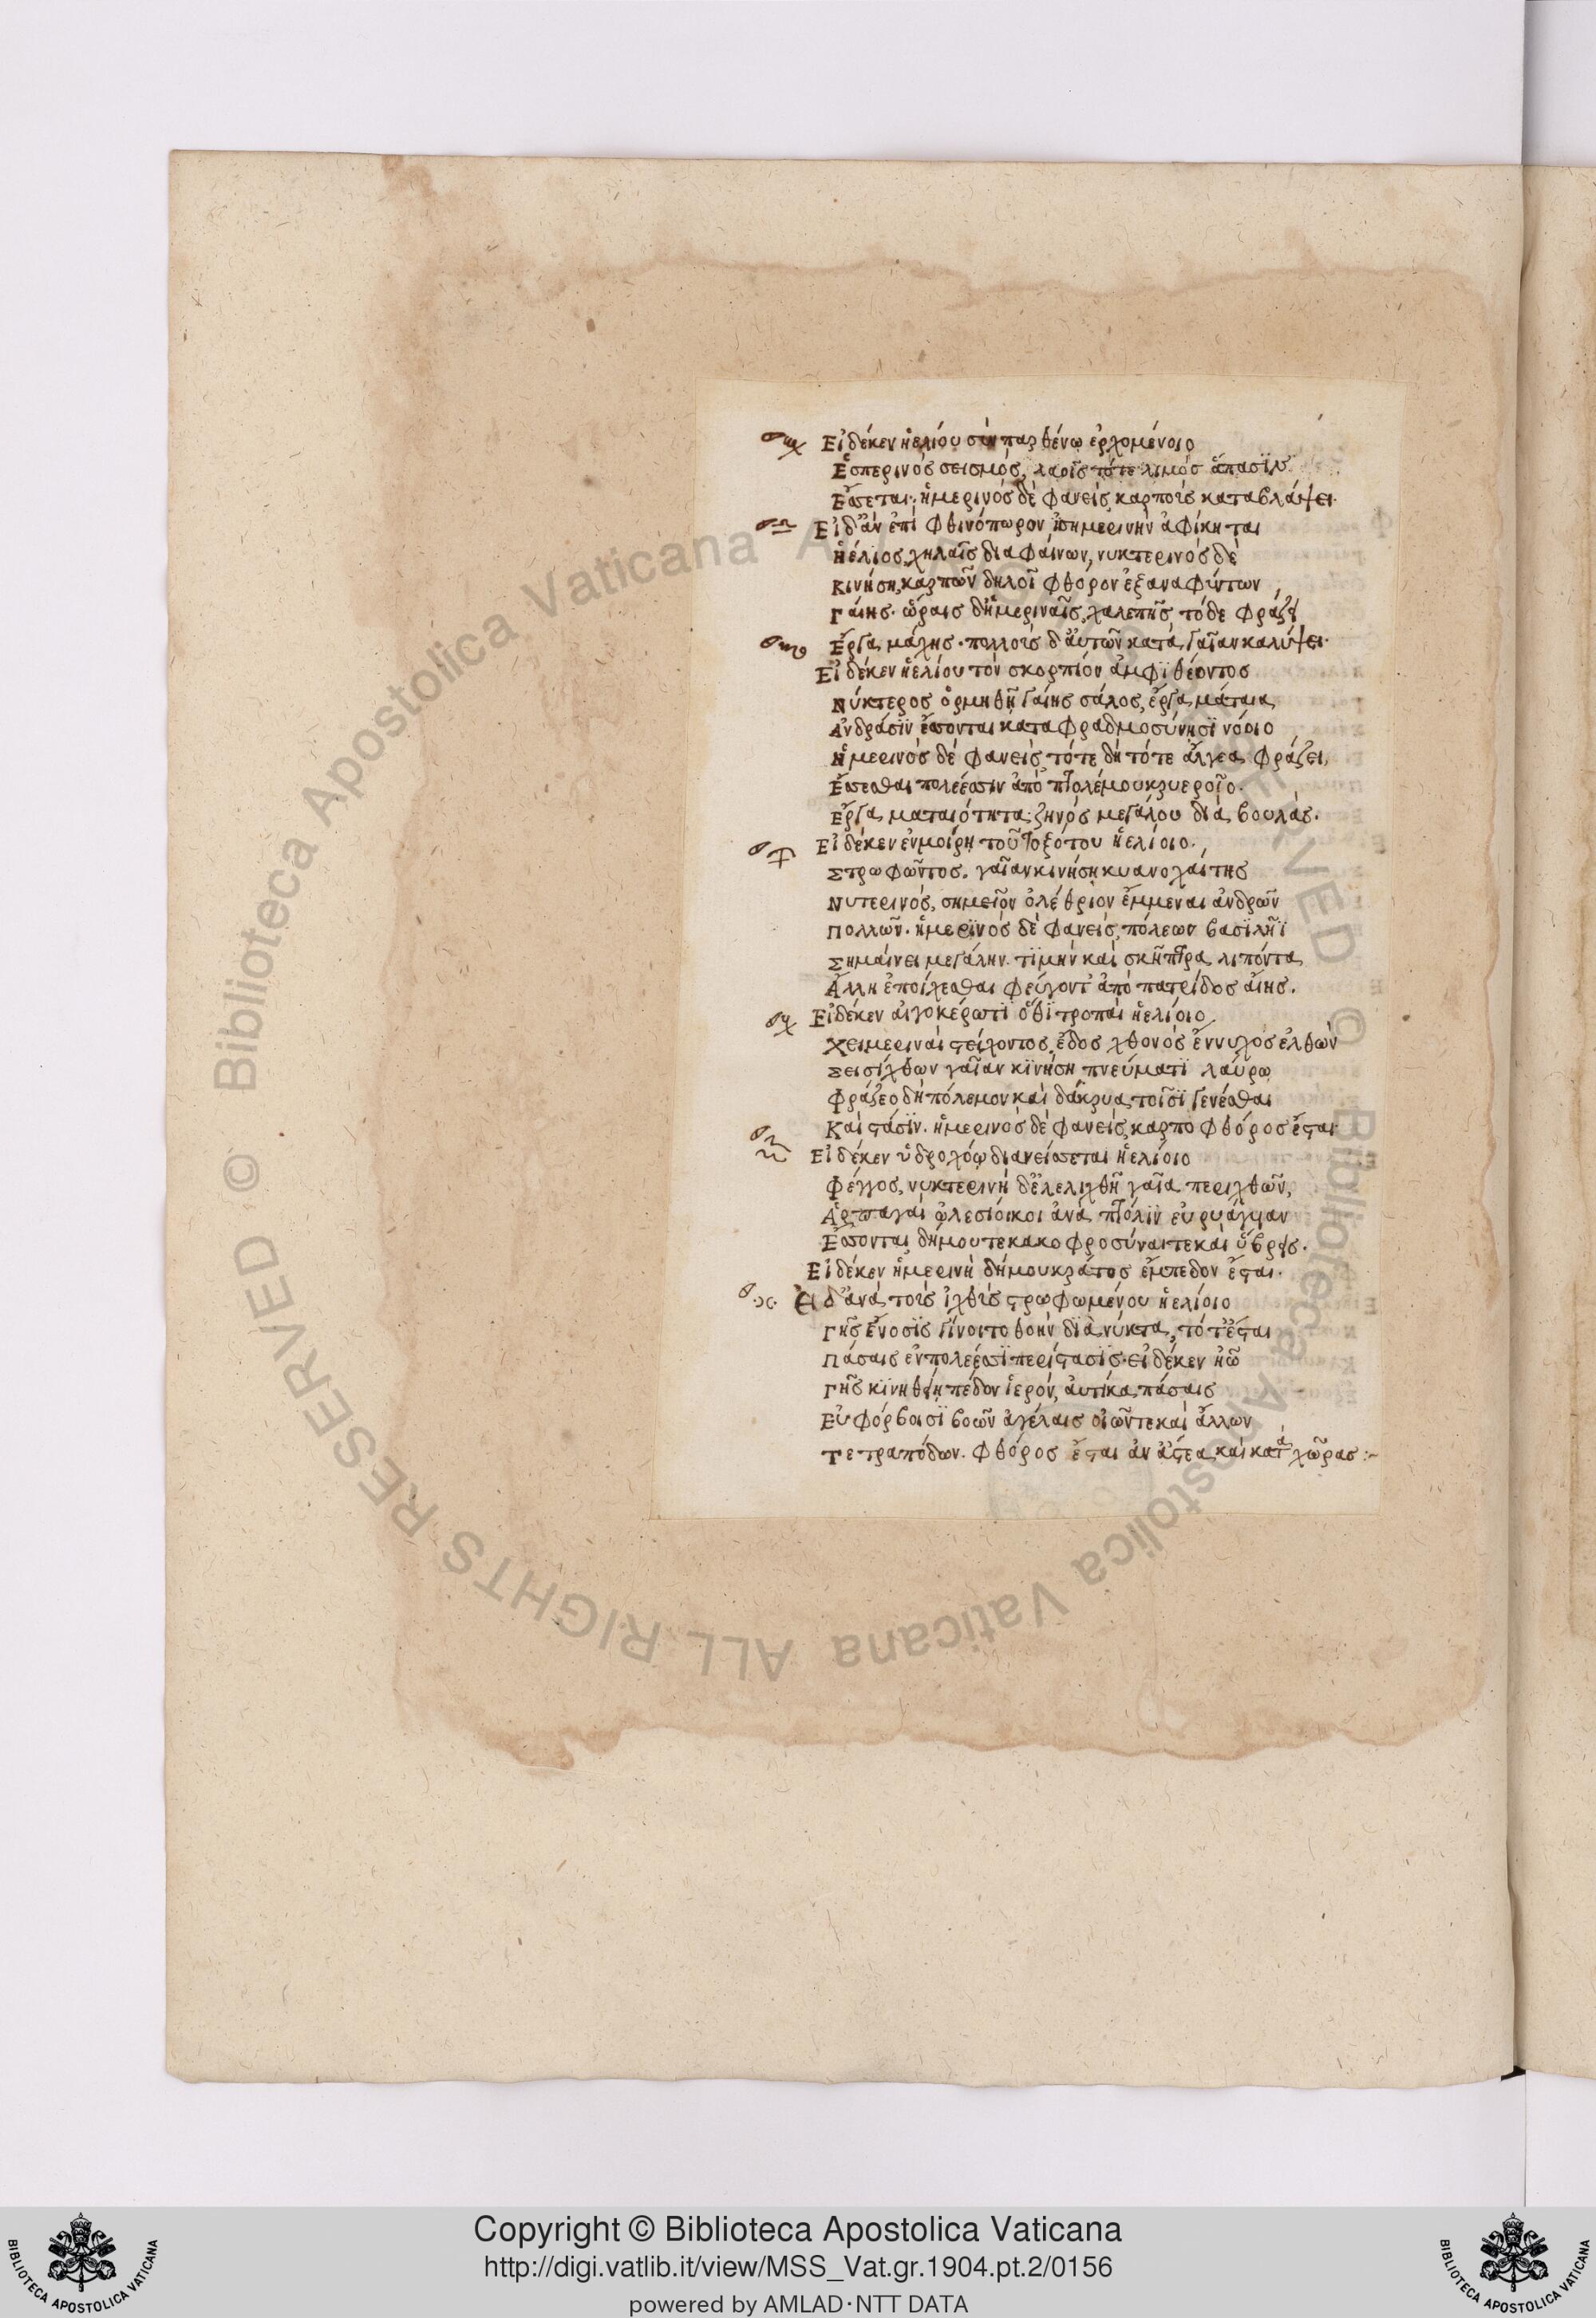 Εἰ δέκεν ἠελίου σὺν παρθένω ἐρχομένοιο
Ἑσπερινὸς σεισμὸς, λαοῖς τότε λιμὸς ἅπασϊν
Ἔσεται· ἡμερινὸς δὲ φανεὶς καρποὺς καταβλάψει·
Εἰ δ' ἂν ἐπὶ φθινόπωρον ἰσημερινὴν ἀφίκηται
ἠέλιος χηλαῖς διαφαίνων, νυκτερινὸς δὲ
κινήση, καρπῶν δηλοῖ φθόρον ἐξαναφύντων
Γαίης· ὥραις δ' ἡμεριναῖς, χαλεπῆς τόδε φράζει
Ἔργα μάχης· πολλοὺς δ' αὐτῶν κατὰ γαῖαν καλύψει·
Εἰ δέκεν ἠελίου τὸν σκορπίον ἀμφϊθέοντος
Νύκτερος ὁρμηθῆ γαίης σάλος, ἔργα μάταια
Ἀνδράσϊν ἔσονται καταφραδμοσύνησϊ νόοιο
Ἡμερινὸς δὲ φανεὶς τότε δὴ τότε ἄλγεα φράζει,
Ἔσεσθαι πολέεσσιν ἀπὸ πτολέμου κρυεροῖο·
Ἔργα ματαιότητα· ζηνὸς μεγάλου διὰ βουλάς·
Εἰ δέκεν ἐν μοίρη τοῦ τοξότου ἠελίοιο·
Στρωφῶντος· γαῖαν κινήση κυανοχαίτης
Νυτερινὸς, σημεῖον ὀλέθριον ἔμμεναι ἀνδρῶν
Πολλῶν· ἡμερϊνὸς δὲ φανεὶς, πόλεων βασϊλῆϊ
Σημαίνει μεγάλην τϊμὴν καὶ σκῆπτρα λιπόντα
Ἄλλη ἐποίχεσθαι φεύγοντ' ἀπὸ πατρίδος αἴης·
Εἰ δέκεν αἰγοκέρωτϊ ὅθϊ τροπαὶ ἠελίοιο
Χειμεριναὶ στείχοντος, ἕδος χθονὸς ἔννυχος ἐλθὼν
Σεισίχθων γαῖαν κϊνήση πνεύματϊ λαύρω
Φράζεο δὴ πόλεμον καὶ δάκρυα τοῖσϊ γενέσθαι
Καὶ στάσϊν· ἡμερινὸς δὲ φανεὶς, καρποφθόρος ἔσται
Εἰ δέκεν ὑδροχόω διανείσεται ἠελίοιο
Φέγγος, νυκτερινὴ δ' ἐλελιχθῆ γαῖα περιχθῶν,
Ἁρπαγαὶ ὠλεσιόικοι ἀνὰ πτόλϊν εὐρυάγυιαν
Ἔσονται, δήμου τε κακοφροσύναι τε καὶ ὕβρεις·
Εἰ δέκεν ἡμερινὴ δήμου κράτος ἔμπεδον ἔσται·
Εἰ δ' ἀνὰ τοὺς ἰχθῦς στρωφωμένου ἠελίοιο
Γῆς ἔνοσϊς γίνοιτο θοὴν διὰ νύκτα, τότ' ἔσται
Πάσαις ἐν πολέεσσϊ περίστασϊς· εἰ δέκεν ἠῶ
Γῆς κϊνηθείη πέδον ἱερὸν, αὐτίκα πάσαις
Εὐφόρβοισϊ βοῶν ἀγέλαις οἰῶν τε καὶ ἄλλων
Τετραπόδων· φθόρος ἔσται ἀν' ἄστεα καὶ κατὰ χώρας :-
Biblioteca Apostolica Vaticana ALL RIGHTS RESERVED ©
Biblioteca Apostolica Vaticana ALL RIGHTS RESERVED ©
Copyright © Biblioteca Apostolica Vaticana
http://digi.vatlib.it/view/MSS_Vat.gr.1904.pt.2/0156
powered by AMLAD·NTT DATA
BIBLIOTECA APOSTOLICA VATICANA
BIBLIOTECA APOSTOLICA VATICANA